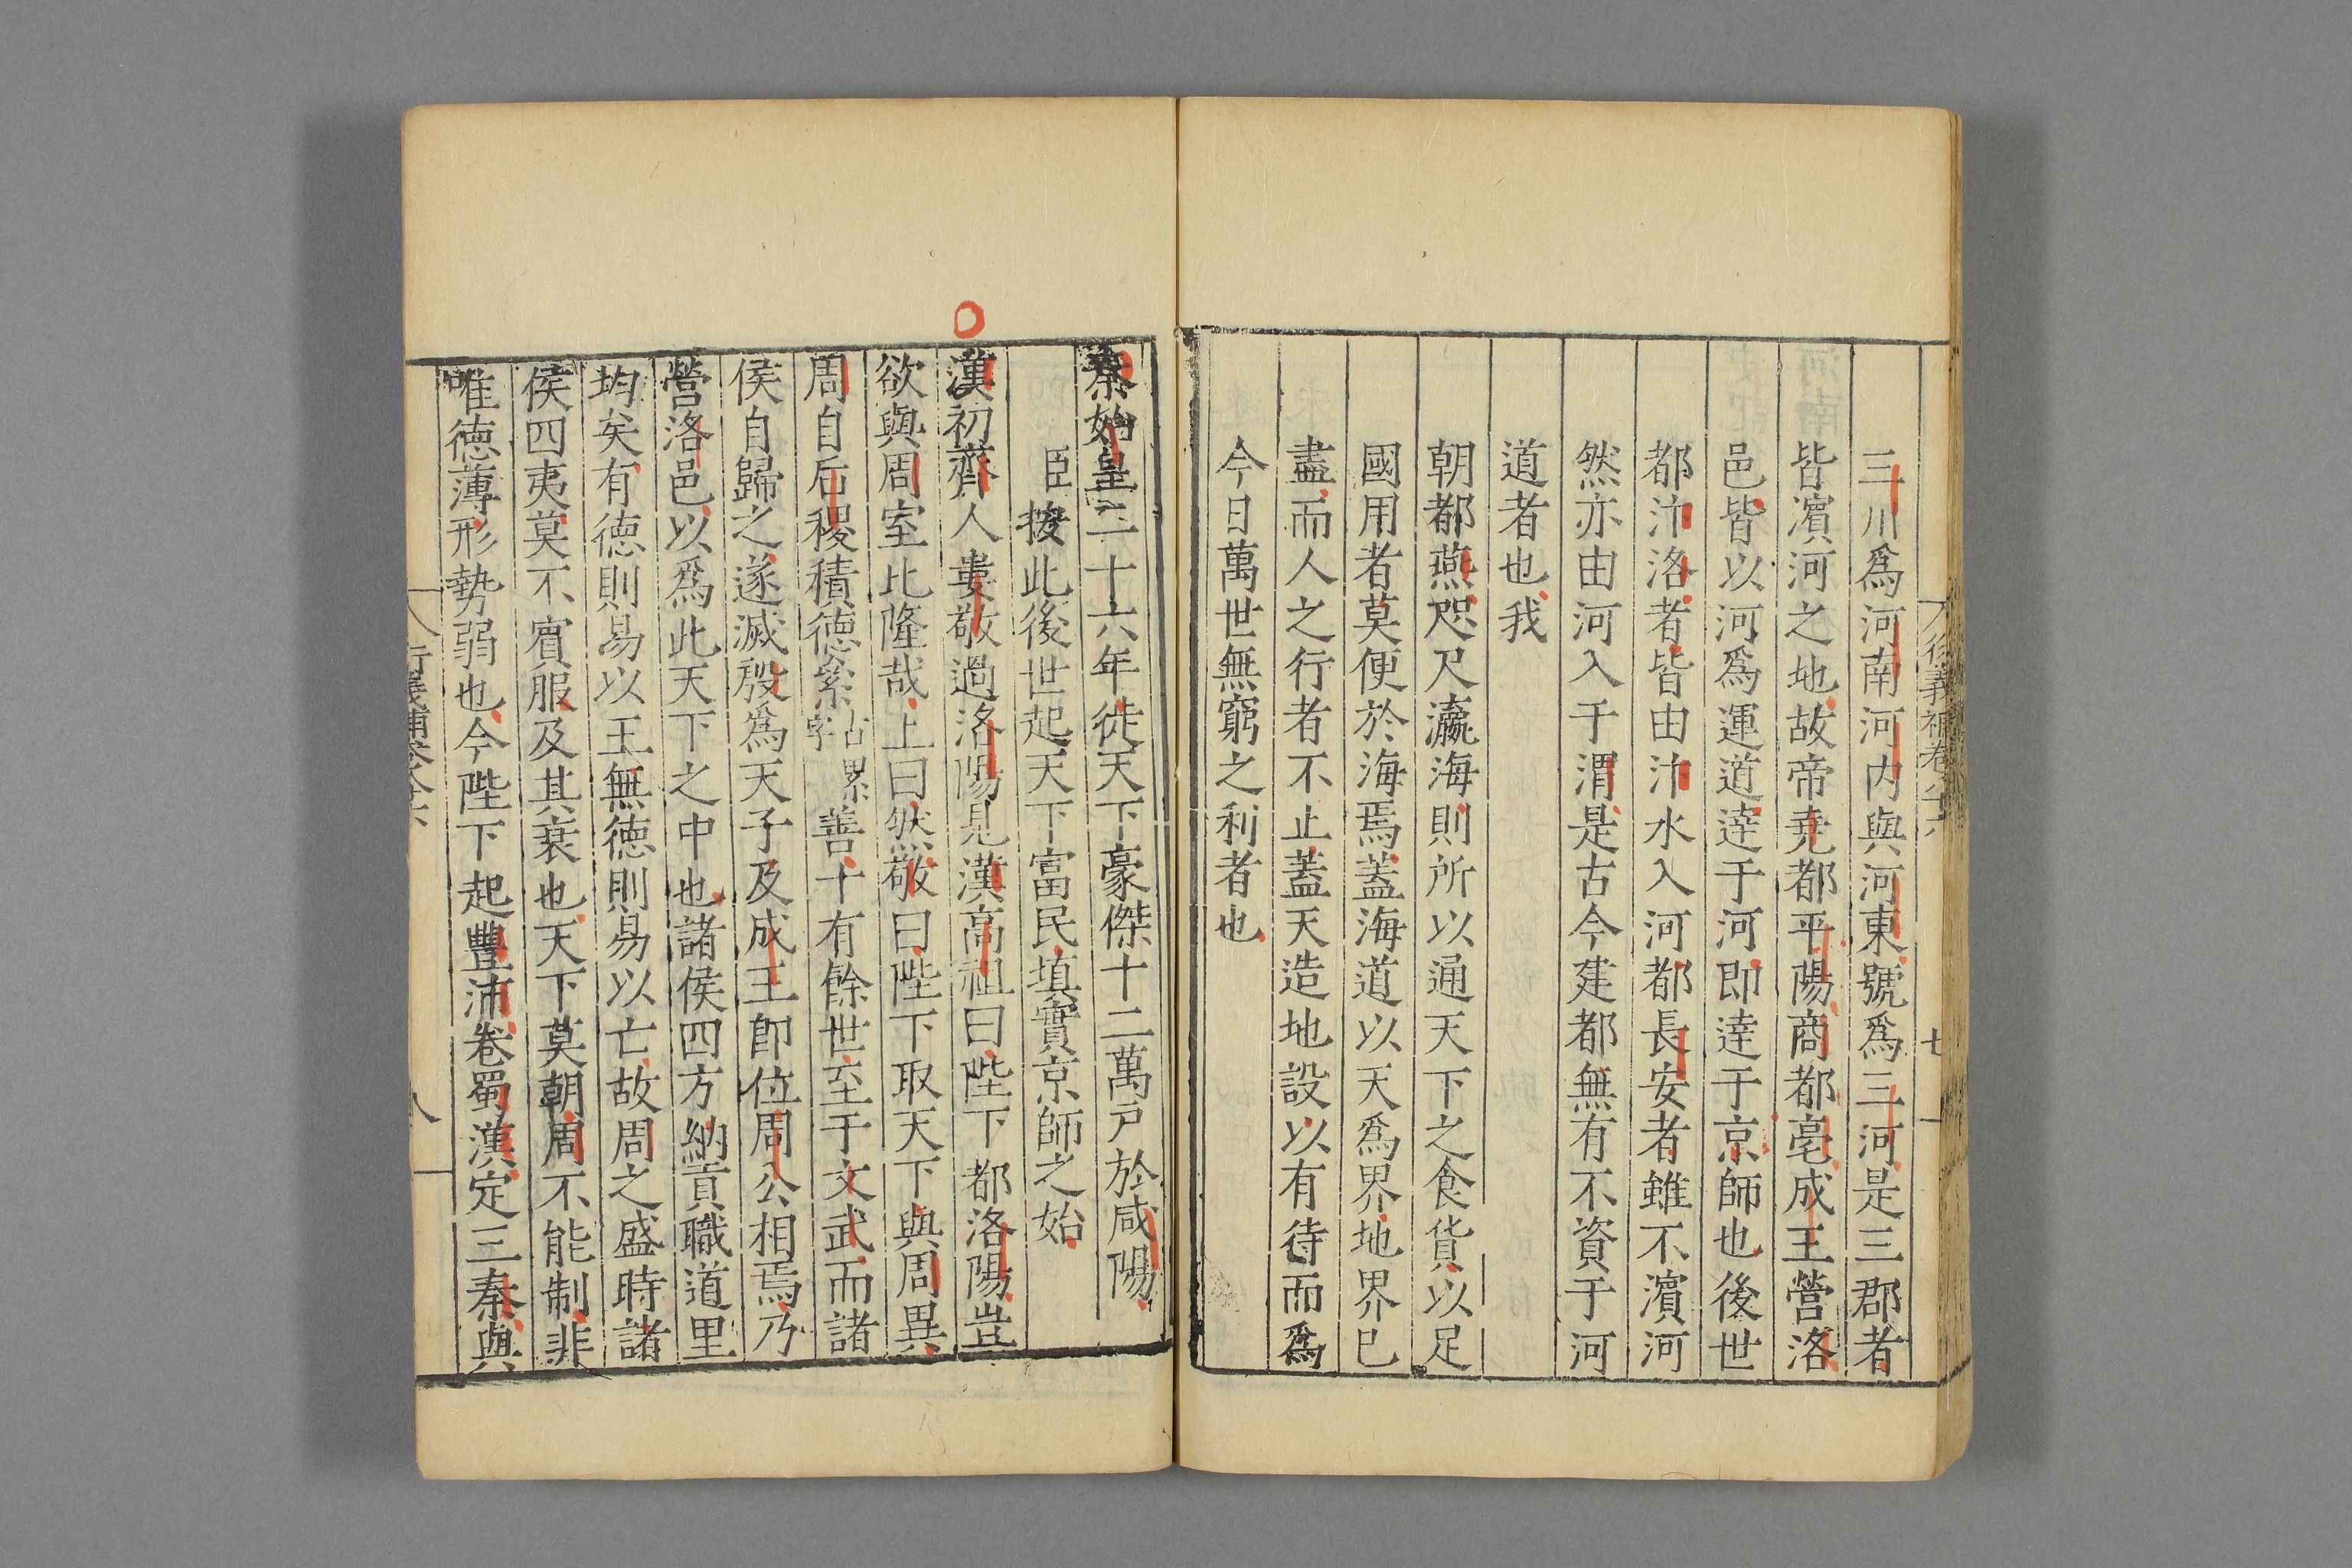 三川爲河南河内與河東號爲三河是三郡者
皆濱河之地故帝堯都平陽商都亳成王營洛
邑皆以河爲運道達于河即達于京師也後世
都汴洛者皆由汴水入河都長安者雖不濱河
然亦由河入于渭是古今建都無有不資于河
道者也我
朝都燕咫尺瀛海則所以通天下之食貨以足
國用者莫便於海焉蓋海道以天爲界地界已
盡而人之行者不止蓋天造地設以有待而爲
今日萬世無窮之利者也
秦始皇二十六年徙天下豪傑十二萬戸於咸陽
臣按此後世起天下富民填實京師之始
漢初齊人婁敬過洛陽見漢高祖曰陛下都洛陽豈
欲與周室比隆哉上曰然敬曰陛下取天下與周異
周自后稷積德絫古累字善十有餘世至于文武而諸
侯自歸之遂滅殷爲天子及成王卽位周公相焉乃
營洛邑以爲此天下之中也諸侯四方納貢職道里
均矣有德則易以王無德則易以亡故周之盛時諸
侯四夷莫不賓服及其衰也天下莫朝周不能制非
唯德薄形勢弱也今陛下起豐沛卷蜀漢定三秦與